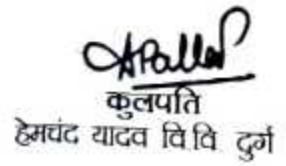 कुलपति
हेमचंद यादव वि वि दुर्ग